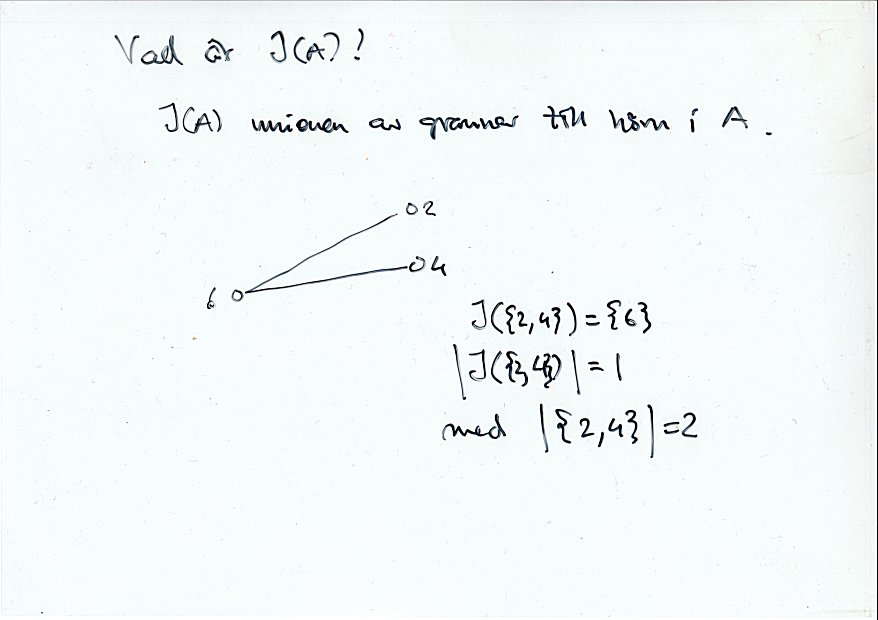 Vad är J(A)?
J(A) unionen av grannar till hörn i A.
2
4
6
J({2,4}) = {6}
|J({2,4})| = 1
med |{2,4}| = 2